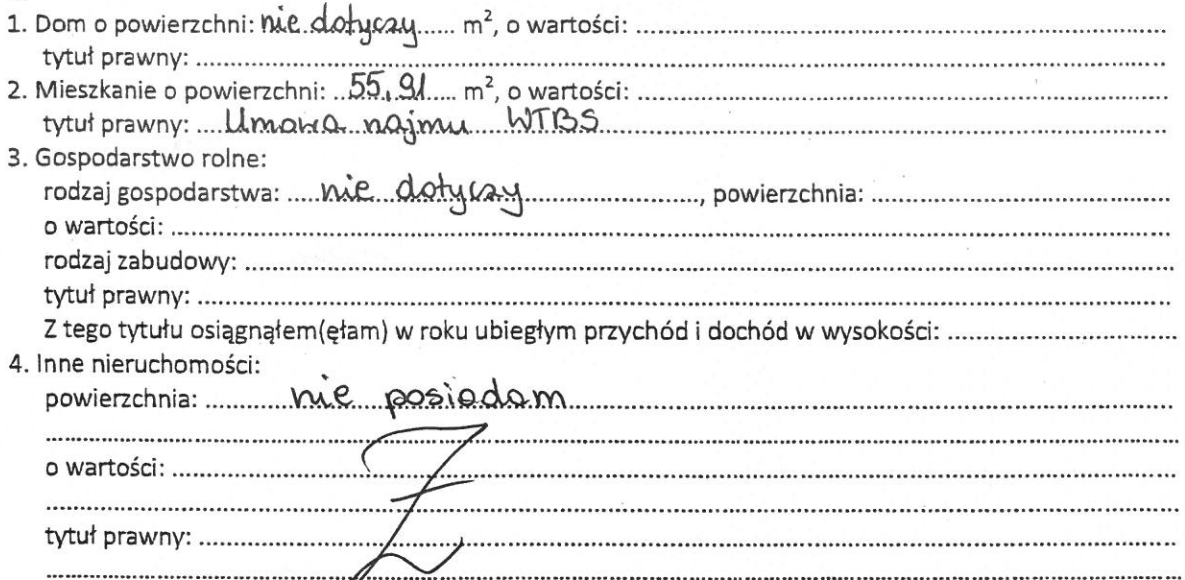 1. Dom o powierzchni: nie dotyczy ...... m², o wartości: ......
tytuł prawny: ......
2. Mieszkanie o powierzchni: ..55,91..... m², o wartości: ......
tytuł prawny: ....Umowa najmu WTBS......
3. Gospodarstwo rolne:
rodzaj gospodarstwa: .....nie dotyczy......, powierzchnia: ......
o wartości: ......
rodzaj zabudowy: ......
tytuł prawny: ......
Z tego tytułu osiągnąłem(ęłam) w roku ubiegłym przychód i dochód w wysokości: ......
4. Inne nieruchomości:
powierzchnia: ......nie posiadam......
o wartości: ......
tytuł prawny: ......